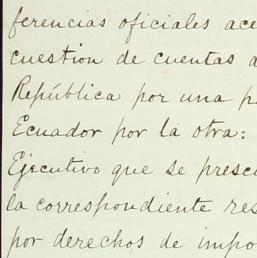 ferencias oficiales ace
cuestion de cuentas a
República por una p
Ecuador por la otra:
Ejecutivo que se presci
la correspondiente res
por derechos de impo